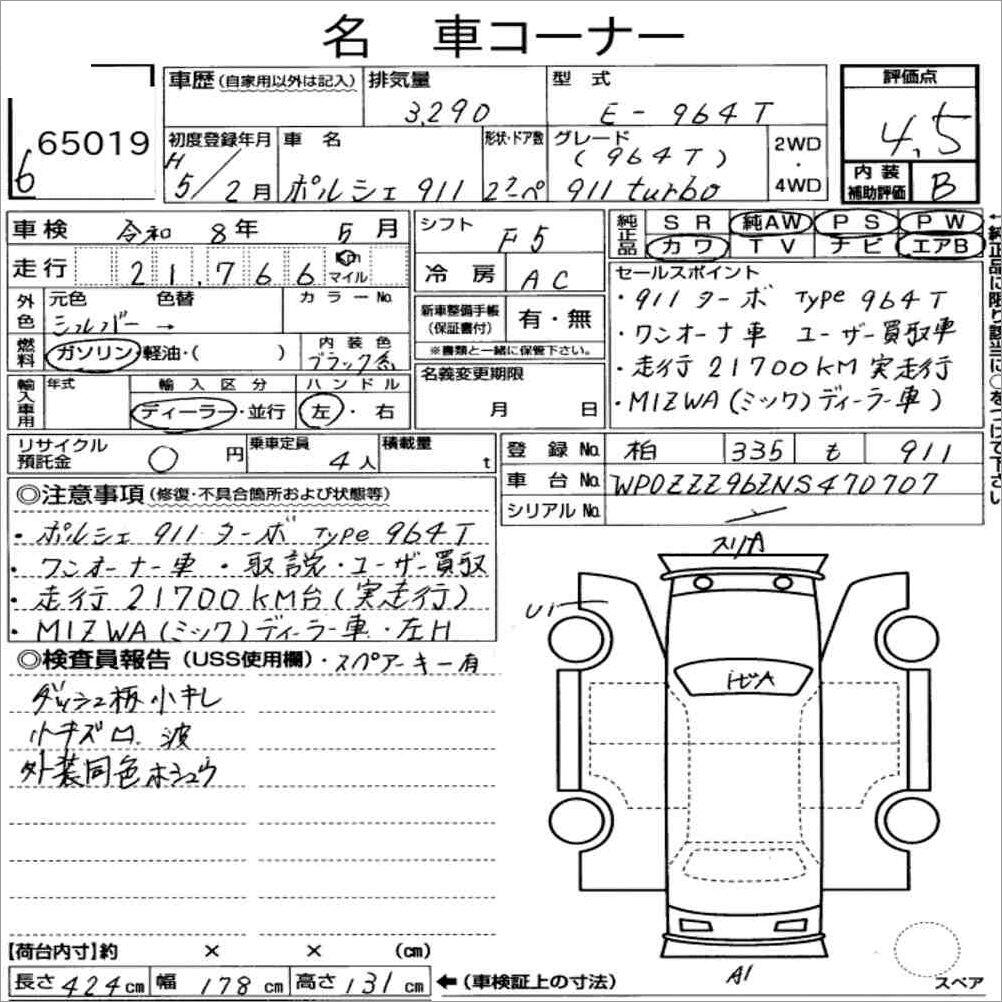 名 車コーナー
65019
6
車歴 (自家用以外は記入)
排気量
3,290
型式
E-964T
評価点
4.5
初度登録年月
H
5/2月
車名
ポルシェ 911
形状・ドア数
22ペ
グレード
(964T)
911 turbo
2WD
・
4WD
内装
補助評価
B
車検 令和 8年 5月
シフト
F5
純正品
SR 純AW PS PW
カワ TV ナビ エアB
走行 21,766 Km マイル
冷房 AC
セールスポイント
・911 ターボ Type 964T
・ワンオーナー車 ユーザー買取車
・走行21700KM実走行
・MIZWA(ミツワ)ディーラー車)
外色
元色 色替
シルバー→
カラーNo.
新車整備手帳
(保証書付)
有・無
※書類と一緒に保管下さい。
燃料
ガソリン・軽油・( )
内装色
ブラック系
名義変更期限
月 日
輸入車用
年式
輸入区分
ディーラー・並行
ハンドル
左・右
←純正品に限り該当に○をつけて下さい
リサイクル
預託金
○円
乗車定員
4人
積載量
t
登録No. 柏 335 も 911
車台No. WP0ZZZ96ZNS470707
シリアルNo.
◎注意事項 (修復・不具合箇所および状態等)
・ポルシェ 911 ターボ Type 964T
・ワンオーナー車・取説・ユーザー買取
・走行21700KM台(実走行)
・MIZWA(ミツワ)ディーラー車・左H
◎検査員報告 (USS使用欄)・スペアーキー有
ダッシュ板小キレ
小キズ凹 波
外装同色ホシュウ
スリA
U1
トビA
A1
スペア
【荷台内寸】約 × × (cm)
長さ 424cm 幅 178cm 高さ 131cm ←(車検証上の寸法)